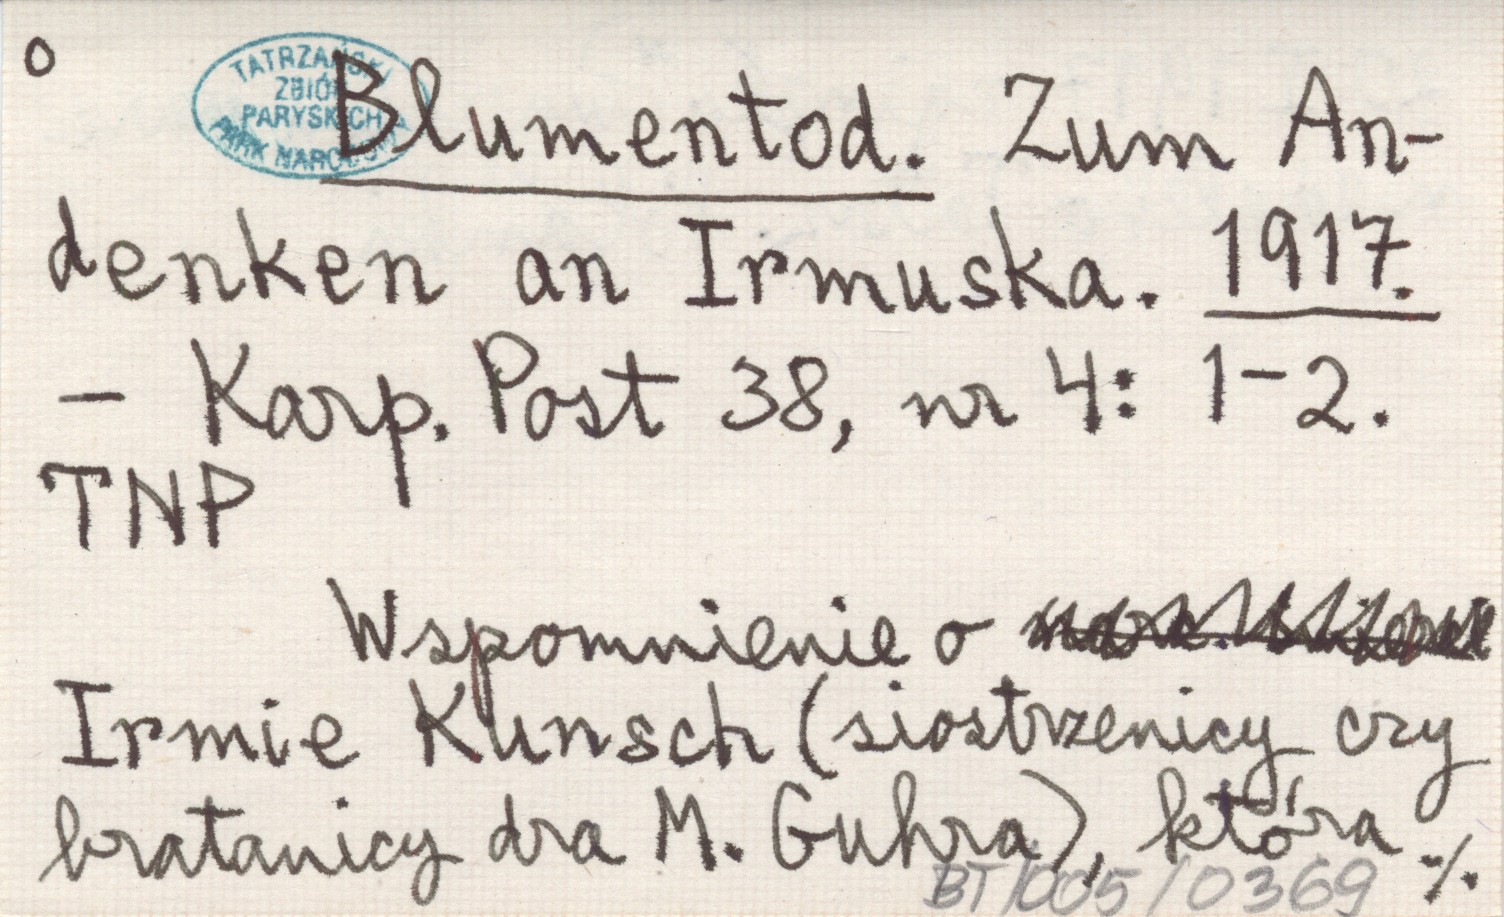 o
TATRZAŃSKI
ZBIÓR
PARYSKICH
PARK NARODOWY
Blumentod. Zum An-
denken an Irmuska. 1917.
- Karp. Post 38, nr 4: 1-2.
TNP
Wspomnienie o
Irmie Kunsch (siostrzenicy czy
bratanicy dra M. Guhra), która ./.
BT/005/0369